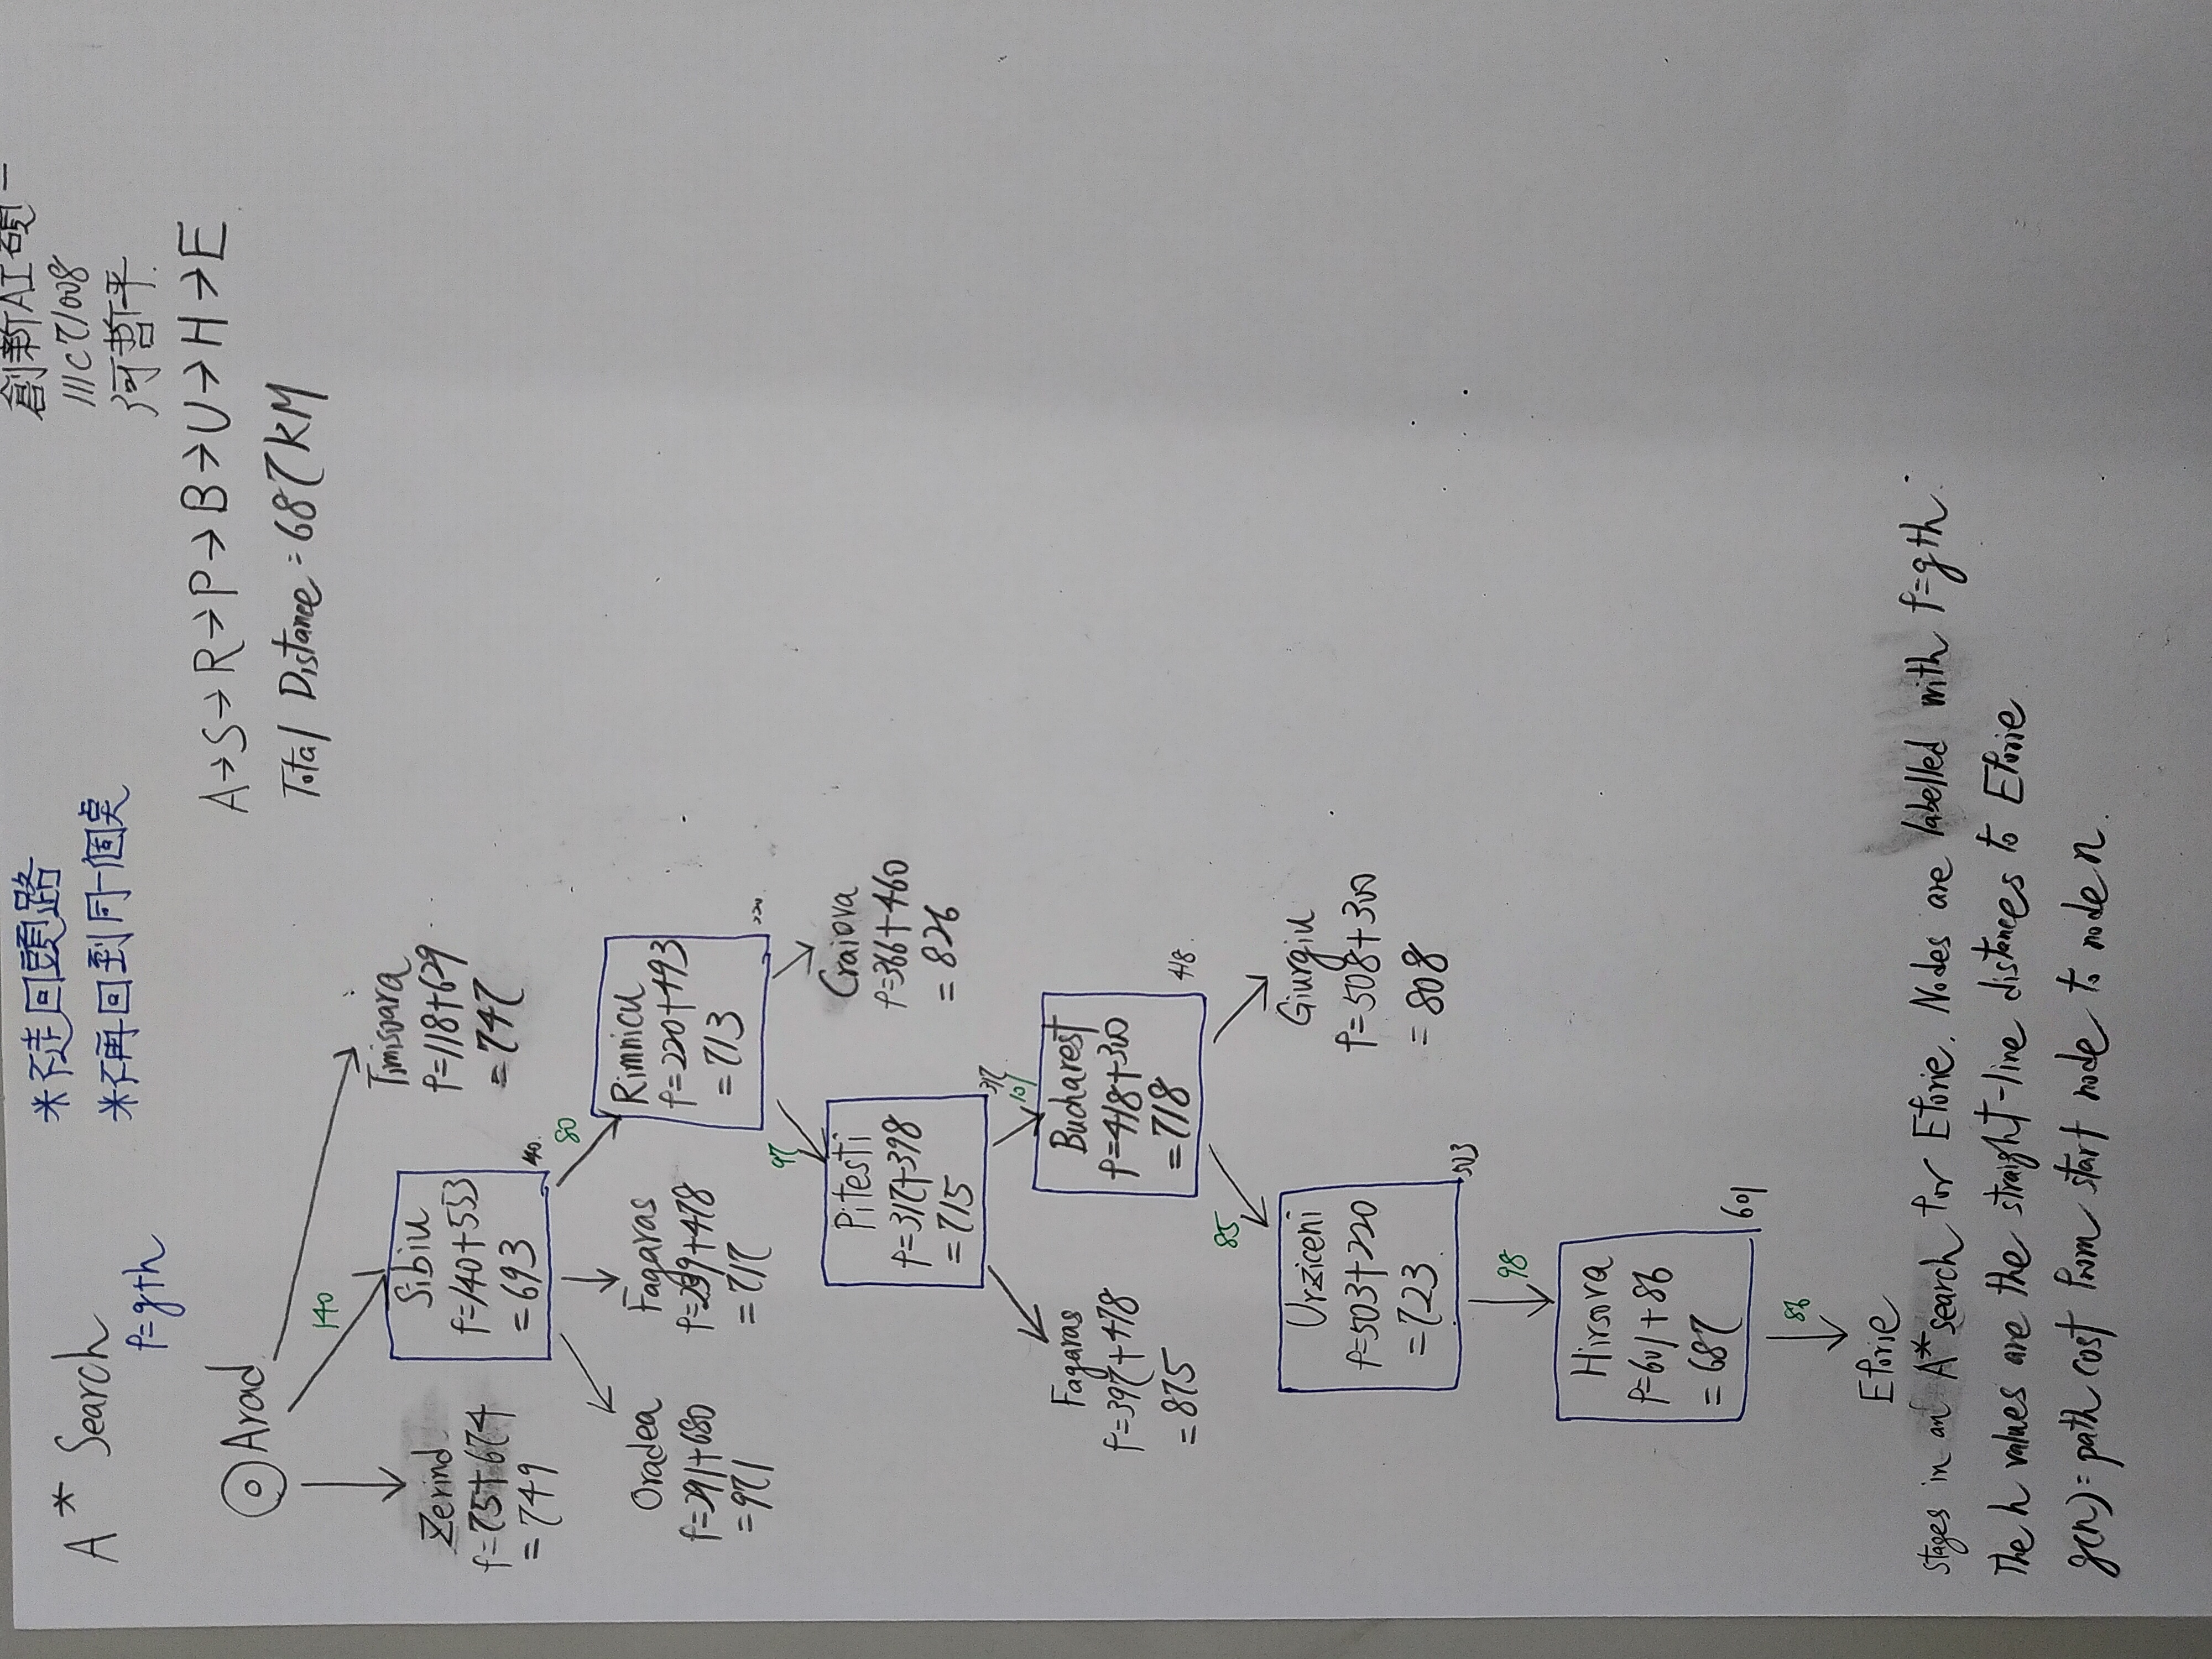 A* Search
f=g+h
*不走回頭路
*不再回到同一個點
創新AI碩一
111C71008
河哲平
A→S→R→P→B→U→H→E
Total Distance=687KM
Arad
140
Zerind
f=75+674
=749
Sibiu
f=140+553
=693
140
Timisoara
f=118+629
=747
80
Oradea
f=291+680
=971
Fagaras
f=239+478
=717
Rimnicu
f=220+493
=713
220
97
Pitesti
f=317+398
=715
317
Craiova
f=366+460
=826
101
Fagaras
f=397+478
=875
Bucharest
f=418+300
=718
418
85
Urziceni
f=503+220
=723
503
Giurgiu
f=508+300
=808
98
Hirsova
f=601+86
=687
601
86
Eforie
stages in an A* search for Eforie. Nodes are labelled with f=g+h.
The h values are the straight-line distances to Eforie
g(n)=path cost from start node to node n.